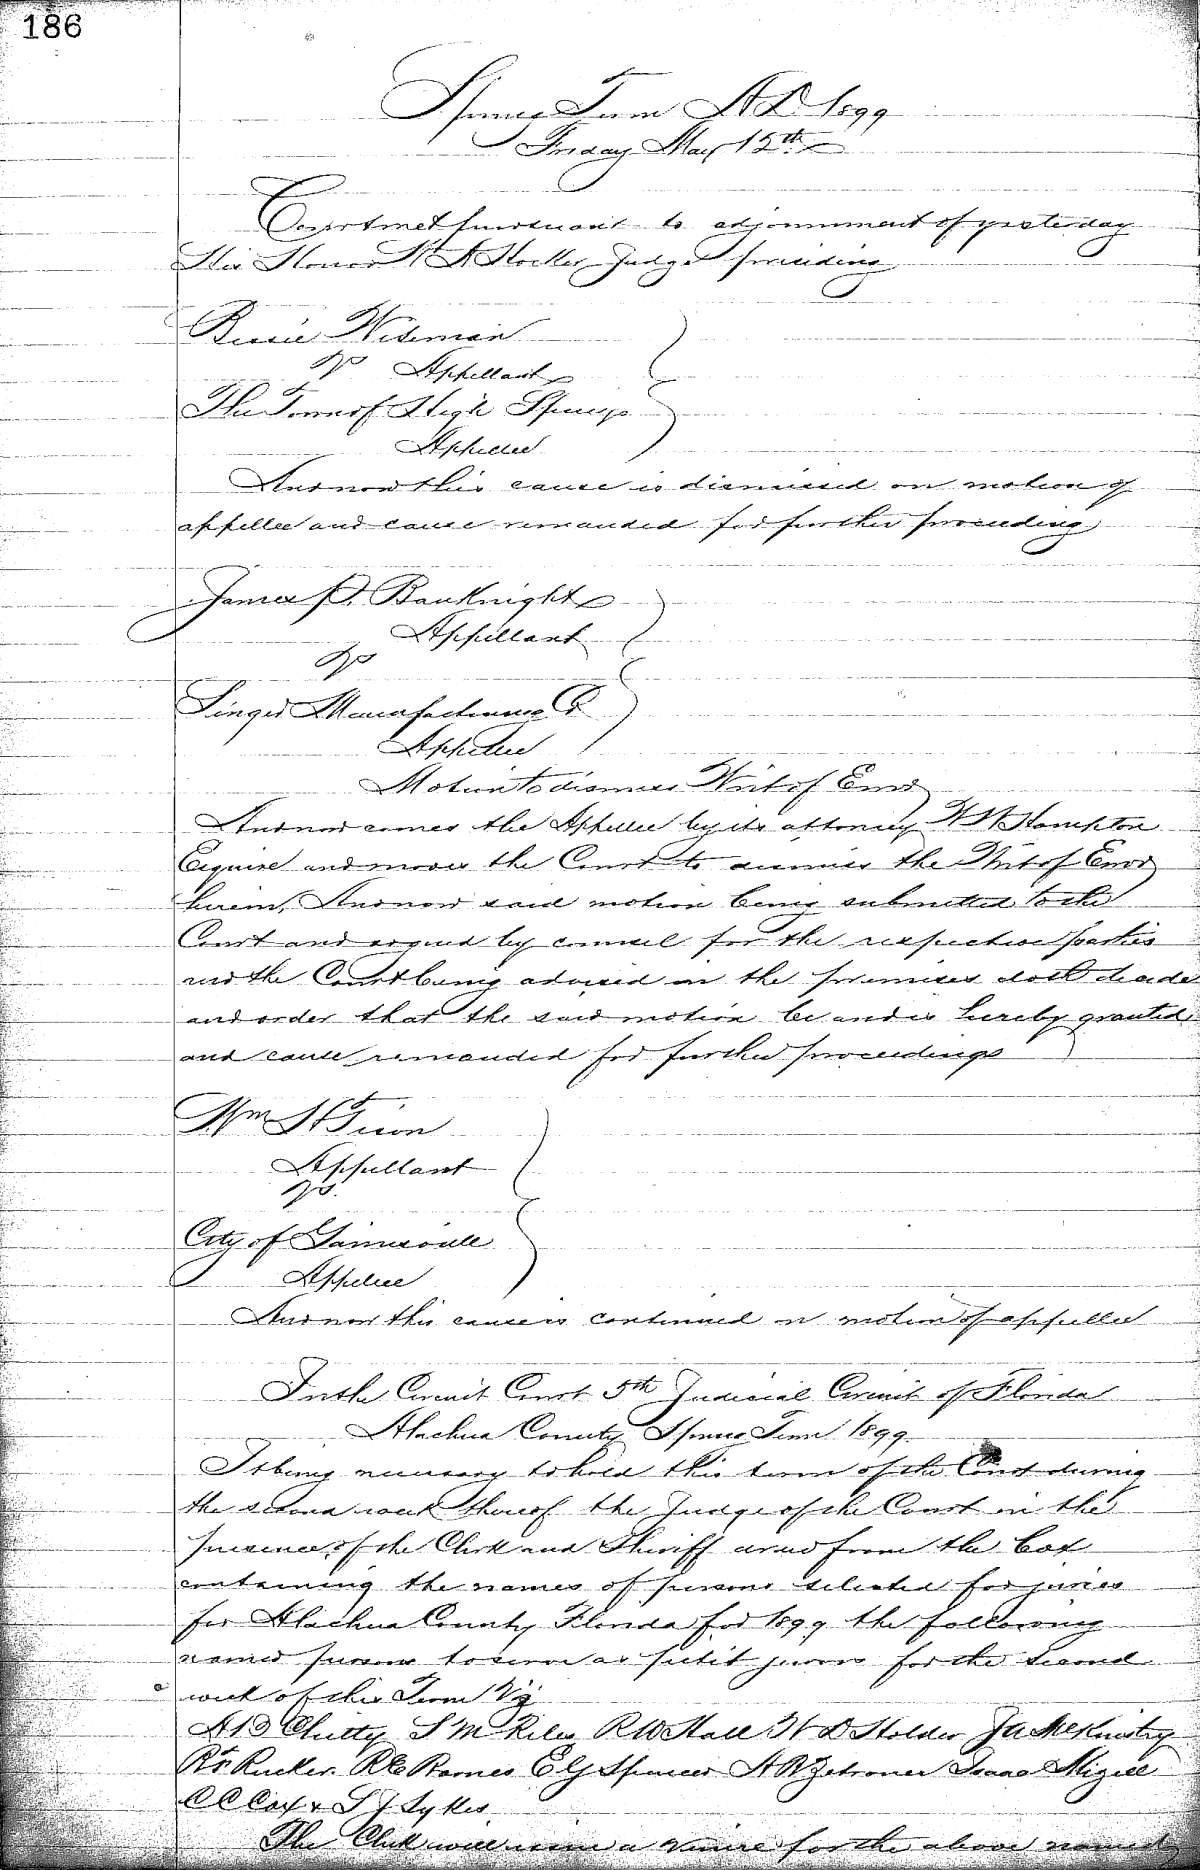 186
Spring Term A D 1899
Friday May 12th
Court met pursuant to adjournment of yesterday
His Honor W A Hocker Judge presiding
Bessie Wideman
vs Appellant
The Town of High Springs
Appellee
And now this cause is dismissed on motion of
appellee and cause remanded for further proceeding
James P. Bauknight
Appellant
vs
Singer Manufacturing Co
Appellee
Motion to dismiss Writ of Error
And now comes the Appellee by its attorney W W Hampton
Esquire and moves the Court to dismiss the Writ of Error
herein, And now said motion being submitted to the
Court and argued by counsel for the respective parties
and the Court being advised in the premises doth decide
and order that the said motion be and is hereby granted
and cause remanded for further proceedings
Wm H Tison
Appellant
vs.
City of Gainesville
Appellee
And now this cause is continued on motion of appellee
In the Circuit Court 5th Judicial Circuit of Florida
Alachua County Spring Term 1899.
It being necessary to hold this term of the Court during
the second week thereof the Judge of the Court in the
presence of the Clerk and Sheriff drew from the box
containing the names of persons selected for juries
for Alachua County Florida for 1899 the following
named persons to serve as petit jurors for the second
week of this Term Viz
Chitty S M Riles R W Hall H D Holder J A McKinstry
Rucker. R E Barnes E G Spencer A R Zetrouer Isaac Mizell
C C Cox & S J Sykes
The Clerk will issue a venire for the above named